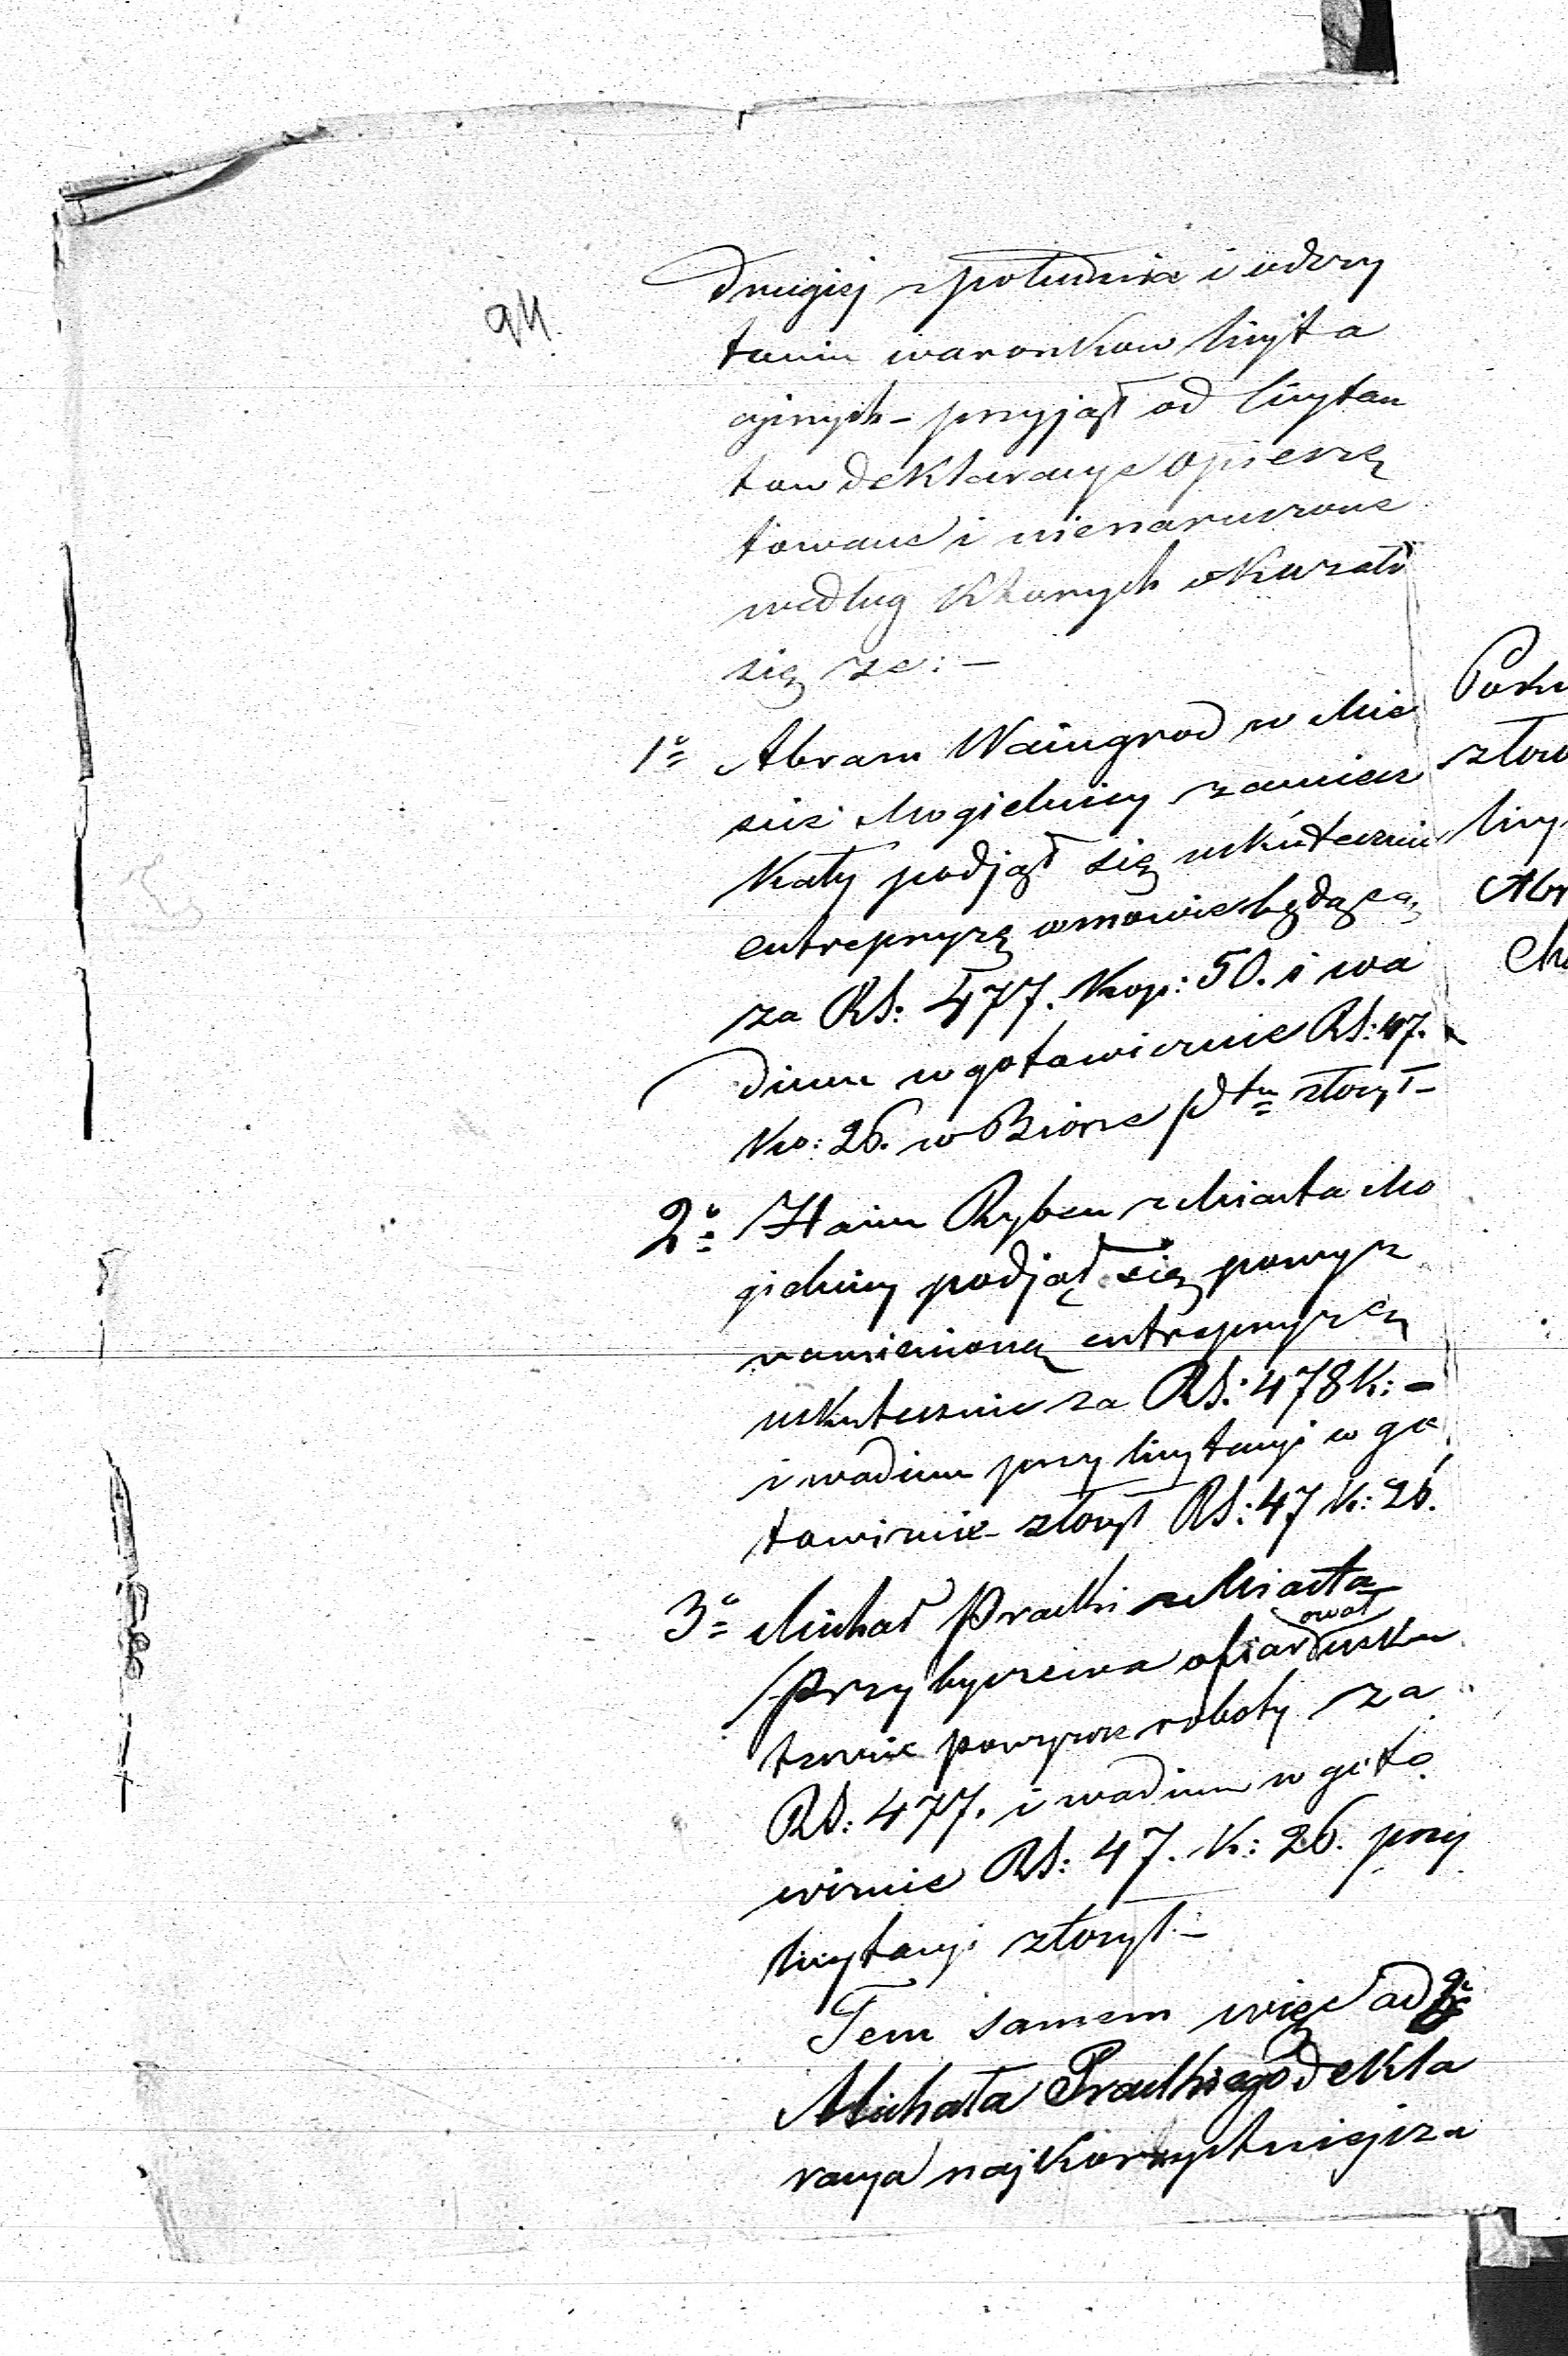 94.
drugiej z południa i odczy
taniu waronkow licyta
cyinych – przyjął od licytan
tow deklaracye opieczę
towane i nienaruszone
według ktorych okazało
się ze: –
1o Abram Waingrod w Mie
scie Mogielnicy zamiesz
kały podjął się uskutecznić
entrepryzę w mowie będącą
za RS: 477. Kop: 50. i wa
dium w gotowiznie RS: 47.
Ko: 26. w Biorze Ptu złozył –
2o Haim Ryben z Miasta Mo
gielnicy podjął się powyz
namienioną entrepryzę
uskutecznic za RS: 478 K: –
i wadium przy licytacyi w go
towiznie złozył RS: 47 K: 26.
3o Michał Pracki z Miasta
Przybyszewa ofiarował usku
tecznic powyzsze roboty za
RS: 477. i wadium w goto
wiznie RS: 47. K: 26. przy
licytacyi złozył. –
Tem samem więc ad
Michała Prackiego dekla
racya najkorzystniejsza
Abr